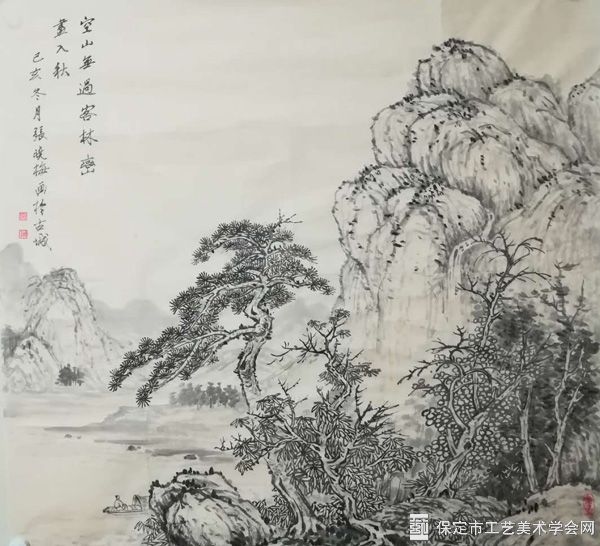 空山無過客林巒
畫入秋
己亥冬月張曉梅画於古城
保定市工艺美术学会网